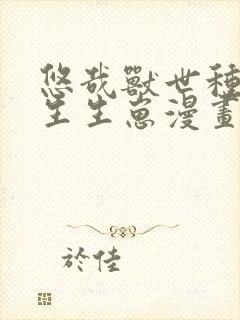 悠哉獸世種
生生崽漫畫
於佳